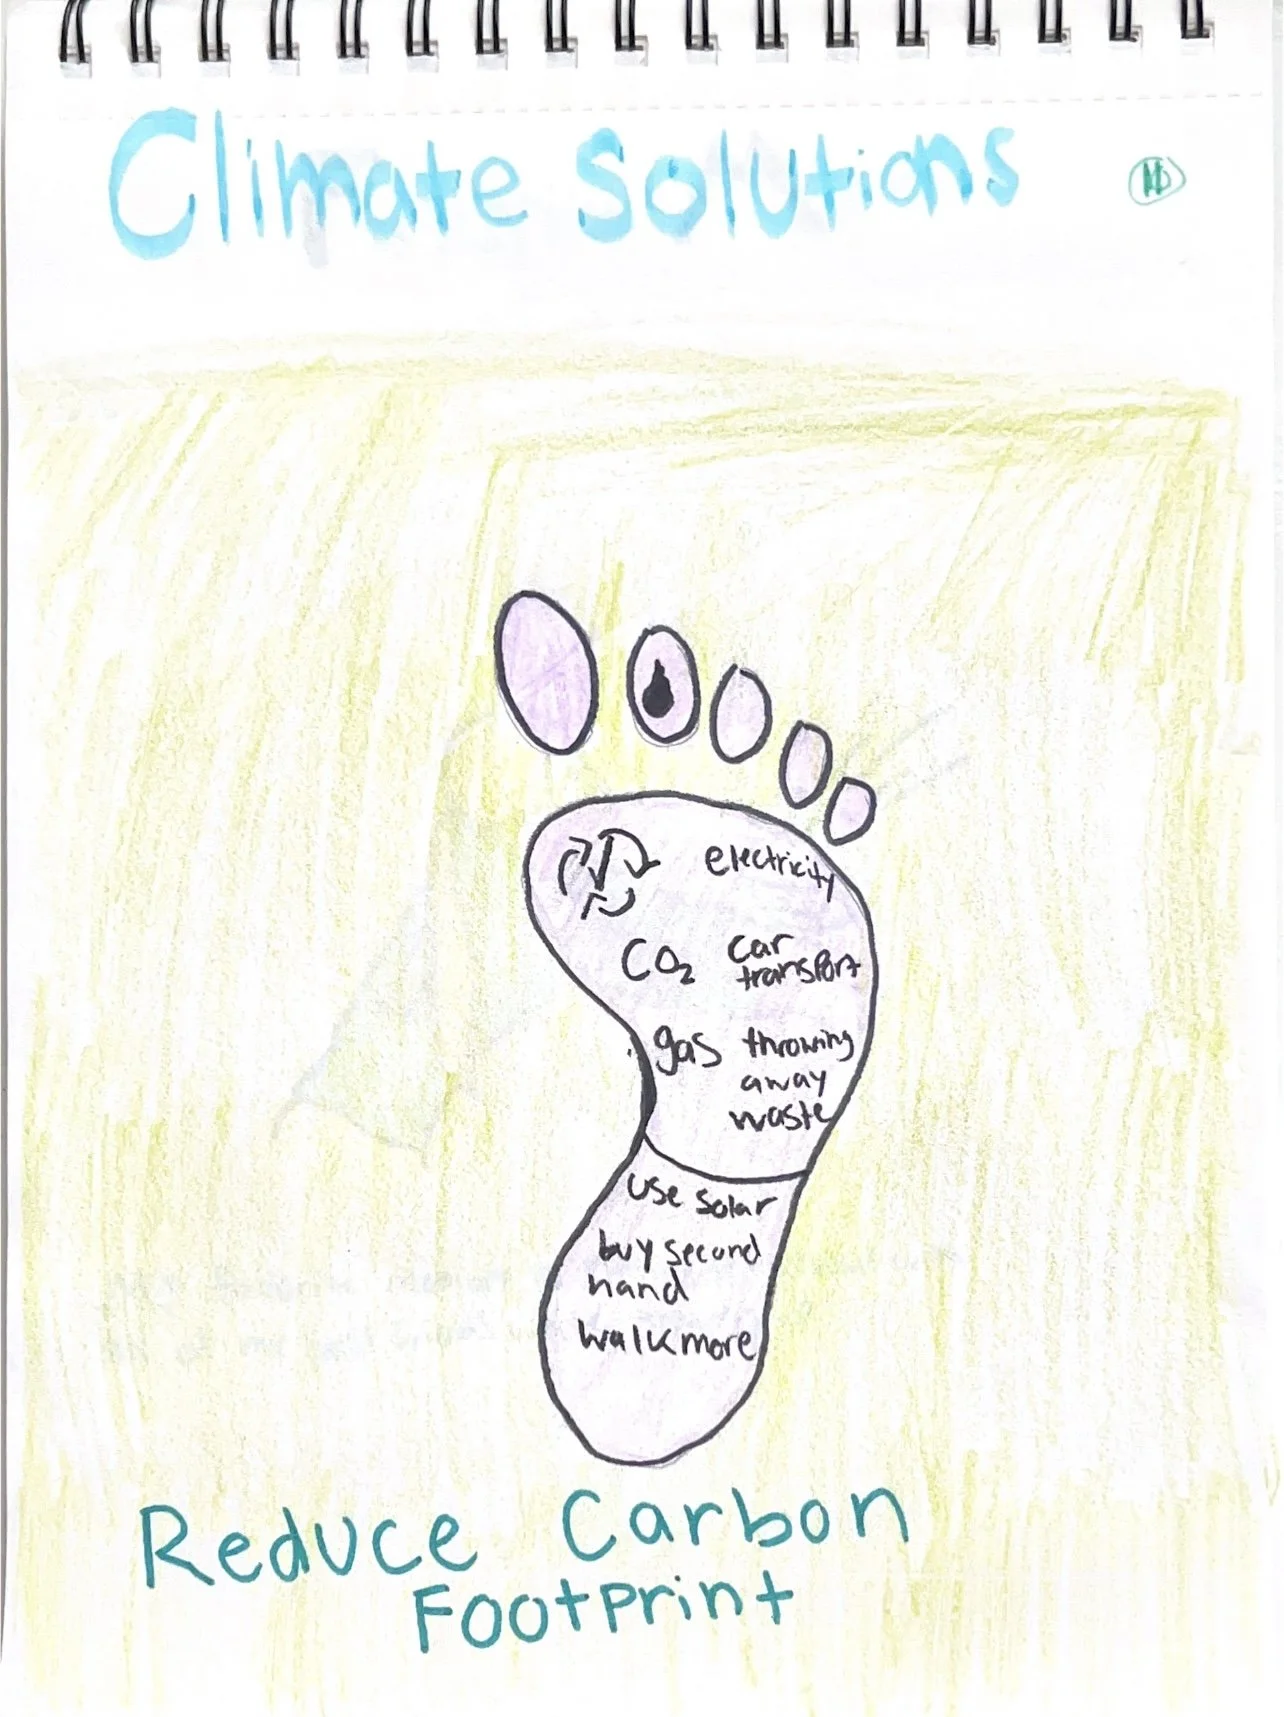 Climate Solutions
electricity
CO₂ car
transport
gas throwing
away
waste
use solar
buy second
hand
walk more
Reduce Carbon
Footprint